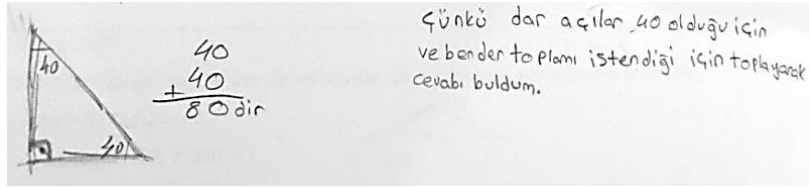 40
40
40
+ 40
80 dir
Çünkü dar açılar 40 olduğu için
ve benden toplamı istendiği için toplayarak
cevabı buldum.